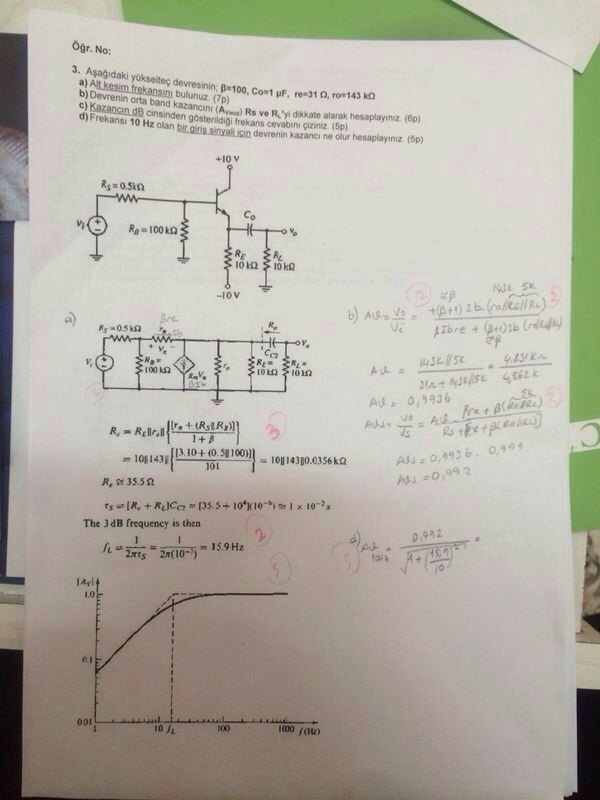 Öğr. No:
3. Aşağıdaki yükselteç devresinin; β=100, Co=1 µF, re=31 Ω, ro=143 kΩ
a) Alt kesim frekansını bulunuz. (7p)
b) Devrenin orta band kazancını (Avmid) Rs ve RL'yi dikkate alarak hesaplayınız. (6p)
c) Kazancın dB cinsinden gösterildiği frekans cevabını çiziniz. (5p)
d) Frekansı 10 Hz olan bir giriş sinyali için devrenin kazancı ne olur hesaplayınız. (5p)
+10 V
RS = 0.5kΩ
Co
Vi
RB = 100 kΩ
vo
RE
10 kΩ
RL
10 kΩ
–10 V
a)
βre
RS = 0.5 kΩ
rπ
Ib
+ Vπ –
Ro
CC2
vo
Vi
RB =
100 kΩ
gmVπ
βIb
ro
RE =
10 kΩ
RL =
10 kΩ
3
Ro = RE||ro||{[rπ + (RS||RB)] / 1 + β}
3
= 10||143||{[3.10 + (0.5||100)] / 101} = 10||143||0.0356 kΩ
Ro ≅ 35.5 Ω
τS = [Ro + RL]CC2 = [35.5 + 10⁴](10⁻⁶) ≅ 1 × 10⁻² s
The 3 dB frequency is then
fL = 1/2πτS = 1/2π(10⁻²) = 15.9 Hz
2
5
b) AV = Vo/Vi = +(β+1) Ib (ro//RE//RL) / βIbre + (β+1)Ib (ro//RE//RL)
≅β
143k 5k
2
2
≅β
AV = 143k//5k / 31Ω + 143k//5k = 4,831k / 4,862k
AV = 0,9936
AVs = Vo/Vs = AV βre + β(RE//RL) / Rs + βre + β(RE//RL)
5k
2
AVs = 0,9936 . 0,999
AVs = 0,992
d) AV10Hz = 0,992 / √1 + (15,9/10)² =
5
|AS|
1.0
0.1
0.01
1
10
fL
100
1000
f(Hz)